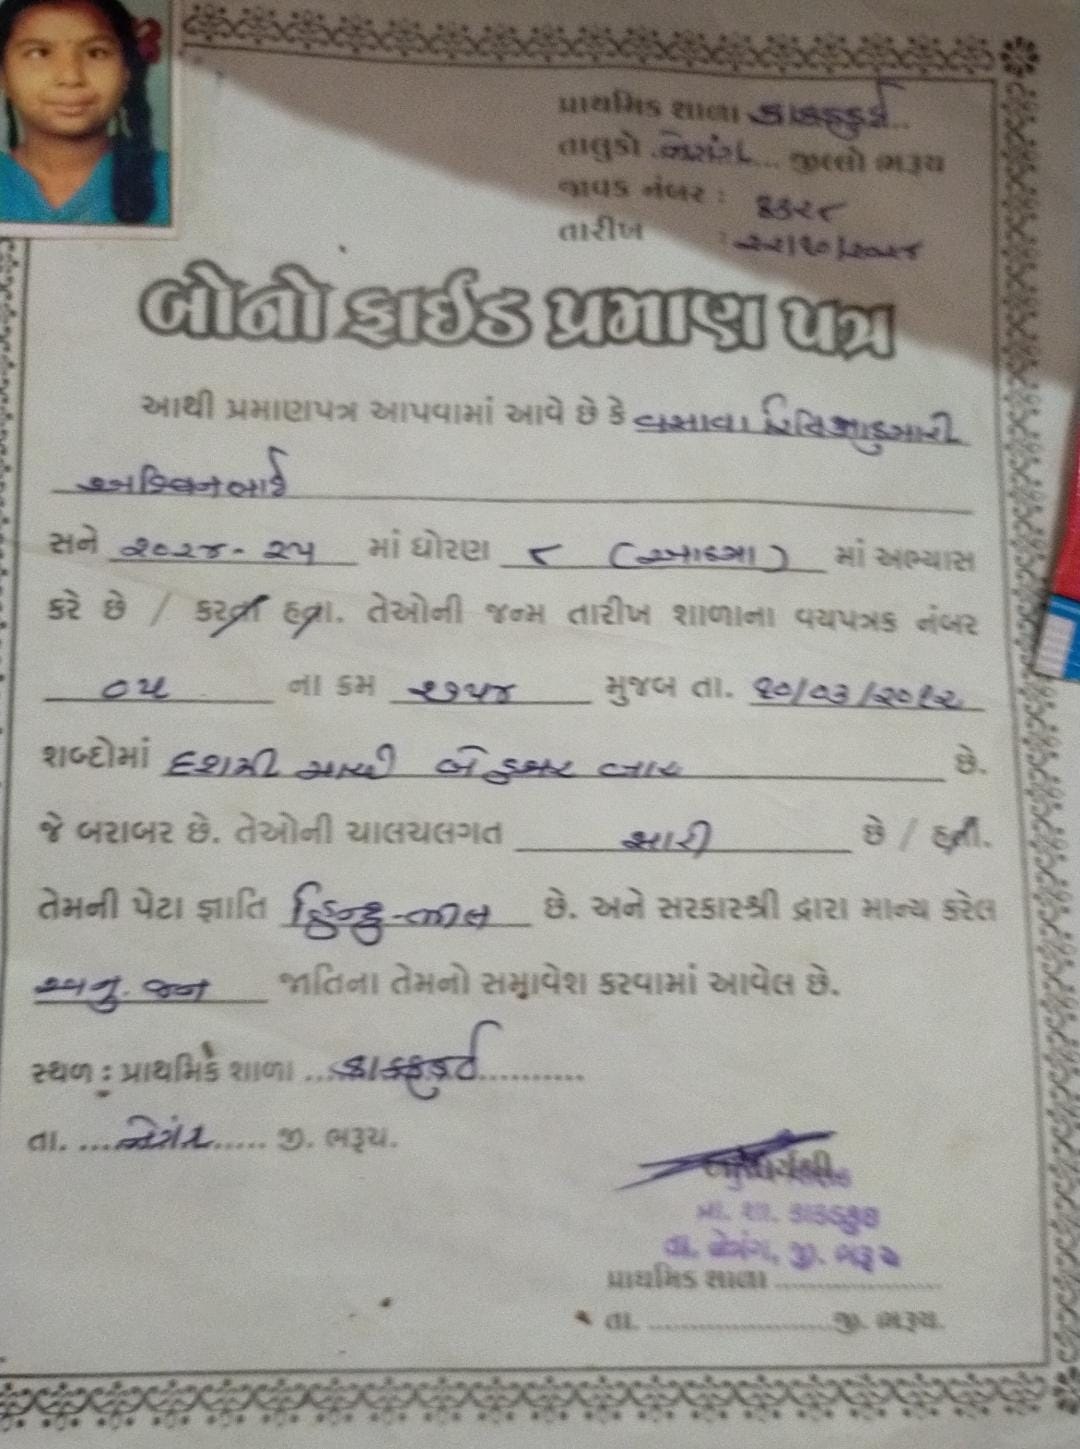 પ્રાથમિક શાળા કાકડકુઈ
તાલુકો નેત્રંગ જીલ્લો ભરૂચ
જાવક નંબર :
તારીખ : ૨૨/૧૦/૨૦૨૪
બોનોફાઈડ પ્રમાણ પત્ર
આથી પ્રમાણપત્ર આપવામાં આવે છે કે વસાવા
અશ્વિનભાઈ
સને ૨૦૨૪-૨૫ માં ધોરણ ૮ (આઠમા) માં અભ્યાસ
કરે છે / કરતા હતા. તેઓની જન્મ તારીખ શાળાના વયપત્રક નંબર
૦૫ ના ક્રમ ૨૭૫૪ મુજબ તા. ૧૦/૦૩/૨૦૧૨
શબ્દોમાં દશમી માર્ચ બે હજાર બાર છે.
જે બરાબર છે. તેઓની ચાલચલગત સારી છે / હતી.
તેમની પેટા જ્ઞાતિ હિન્દુ-ભીલ છે. અને સરકારશ્રી દ્વારા માન્ય કરેલ
અનુ. જન જાતિના તેમનો સમાવેશ કરવામાં આવેલ છે.
સ્થળ : પ્રાથમિક શાળા ...કાકડકુઈ...........
તા. ....નેત્રંગ...... જી. ભરૂચ.
પ્રા. શા. કાકડકુઈ
તા. નેત્રંગ, જી. ભરૂચ
પ્રાથમિક શાળા ......................
તા. ........................જી. ભરૂચ.